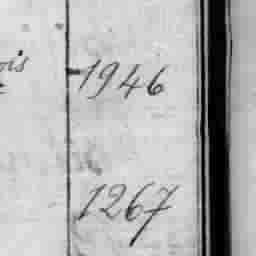 ois 1946
1267